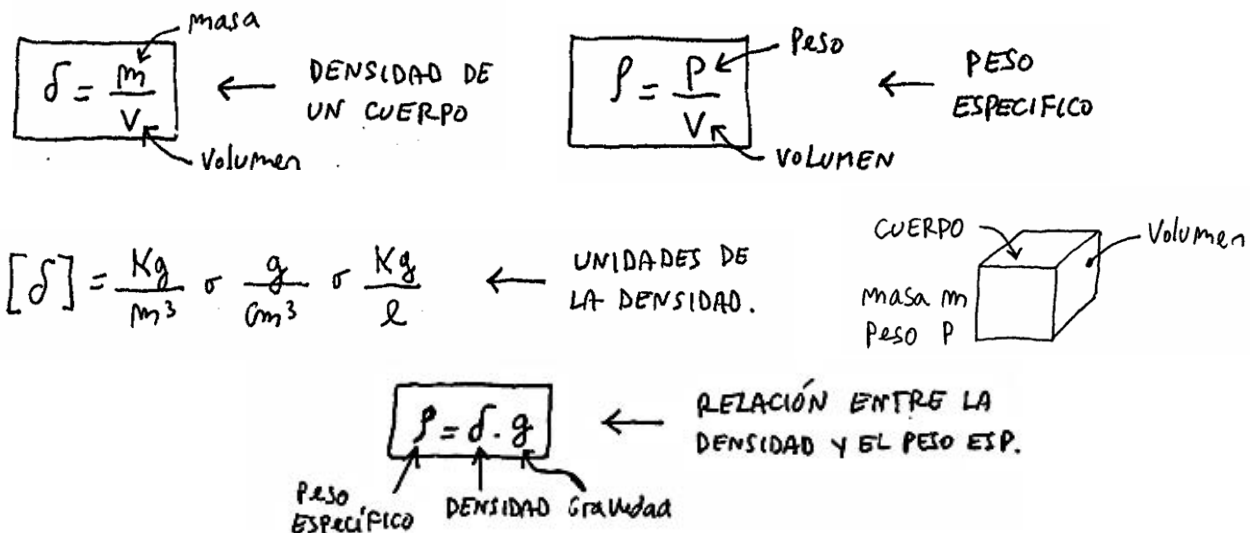 masa
δ = m/V
Volumen
← DENSIDAD DE
UN CUERPO
Peso
ρ = P/V
VOLUMEN
← PESO
ESPECIFICO
[δ] = Kg/m³ o g/cm³ o Kg/l
← UNIDADES DE
LA DENSIDAD.
CUERPO
Volumen
masa m
Peso P
ρ = δ . g
← RELACIÓN ENTRE LA
DENSIDAD Y EL PESO ESP.
Peso
ESPECÍFICO
DENSIDAD
Gravedad